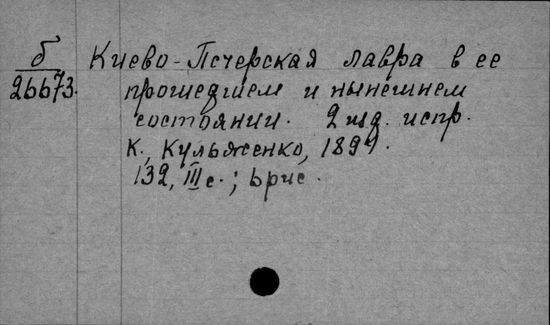 б
26673.
Киево-Печерская лавра в ее
прошедшем и нынешнем
состоянии. 2 изд. испр.
К., Кульженко, 1894.
132, III с.; 6 рис.